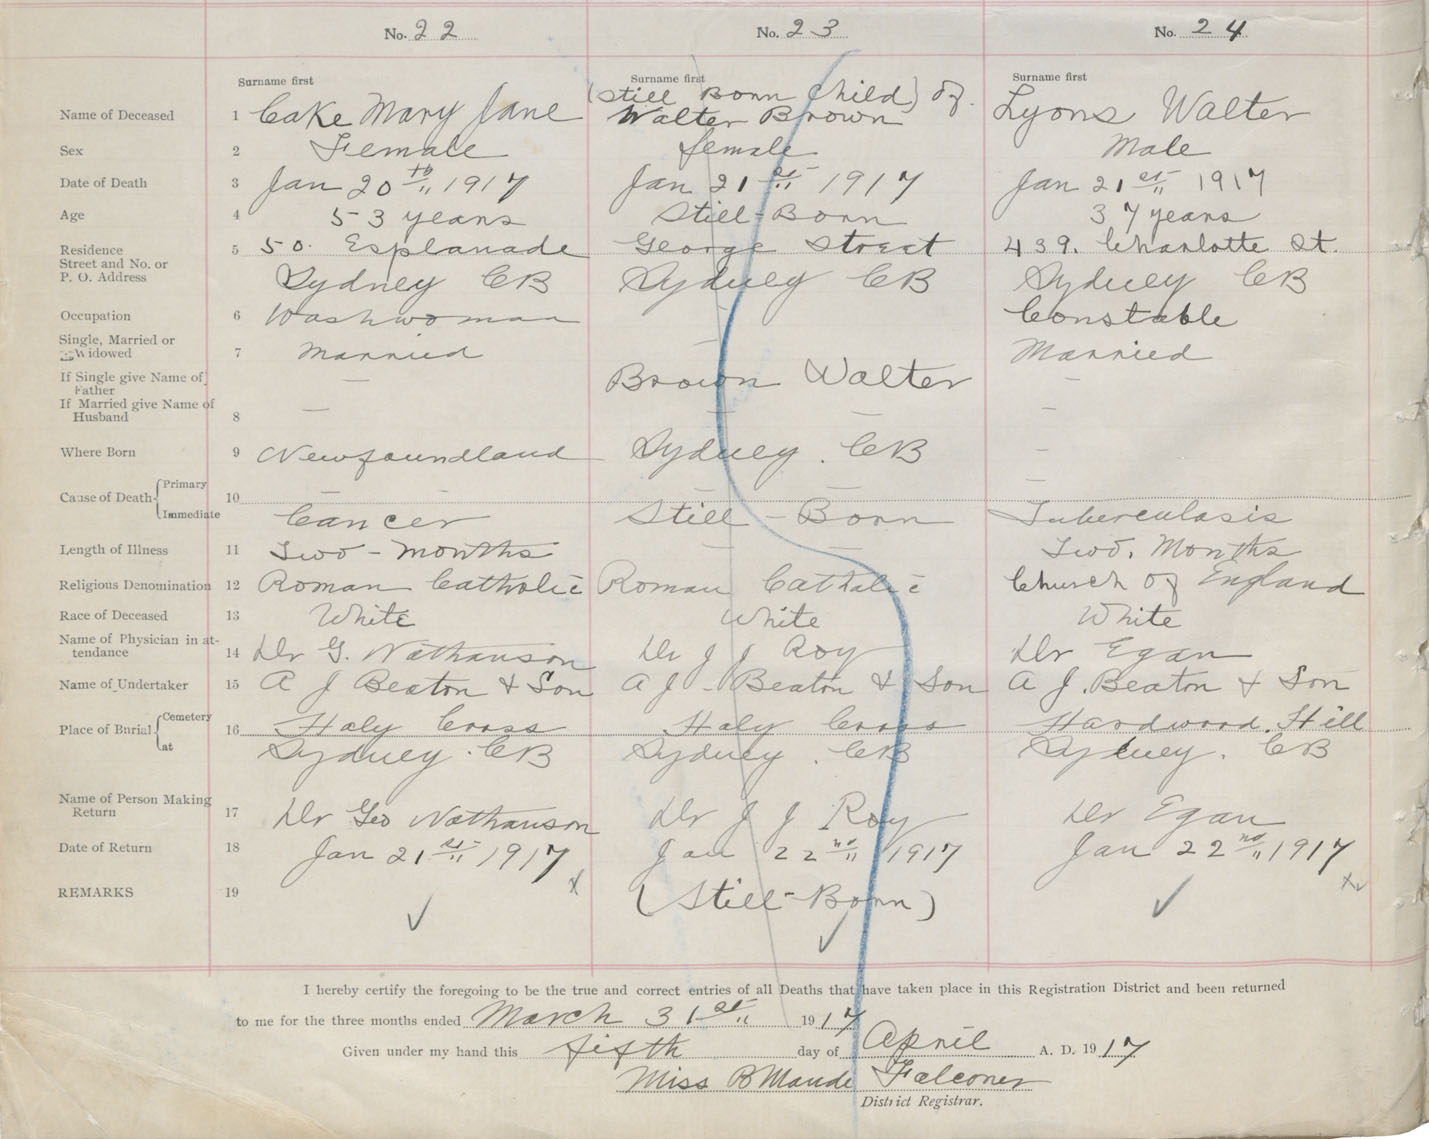 No. 22 No. 23 No. 24
Surname first Surname first Surname first
(Still Born Child) of.
Name of Deceased 1 Cake Mary Jane Walter Brown Lyons Walter
Sex 2 Female female Male
Date of Death 3 Jan 20th 1917 Jan 21st 1917 Jan 21st 1917
Age 4 53 years Still-Born 37 years
Residence 5 50. Esplanade George Street 439. Charlotte St.
Street and No. or
P. O. Address Sydney CB Sydney CB Sydney CB
Occupation 6 Washwoman - Constable
Single, Married or
Widowed 7 Married - Married
If Single give Name of
Father — Brown Walter —
If Married give Name of
Husband 8 — — — —
Where Born 9 Newfoundland Sydney. CB —
Primary — — — — —
Cause of Death 10
Immediate Cancer Still-Born Tuberculosis
Length of Illness 11 Two-months — — Two. Months
Religious Denomination 12 Roman Catholic Roman Catholic Church of England
Race of Deceased 13 White White White
Name of Physician in at-
tendance 14 Dr G. Nathanson Dr J J Roy Dr Egan
Name of Undertaker 15 A J Beaton & Son A J - Beaton & Son A J. Beaton & Son
Cemetery
Place of Burial 16 Holy Cross Holy Cross Hardwood. Hill
at Sydney. CB Sydney. CB Sydney. CB
Name of Person Making
Return 17 Dr Geo Nathanson Dr J J Roy Dr Egan
Date of Return 18 Jan 21st 1917 Jan 22nd 1917 Jan 22nd 1917
REMARKS 19 (Still-Born)
I hereby certify the foregoing to be the true and correct entries of all Deaths that have taken place in this Registration District and been returned
to me for the three months ended March 31st 1917
Given under my hand this fifth day of April A. D. 1917
Miss B Maude Falconer
District Registrar.